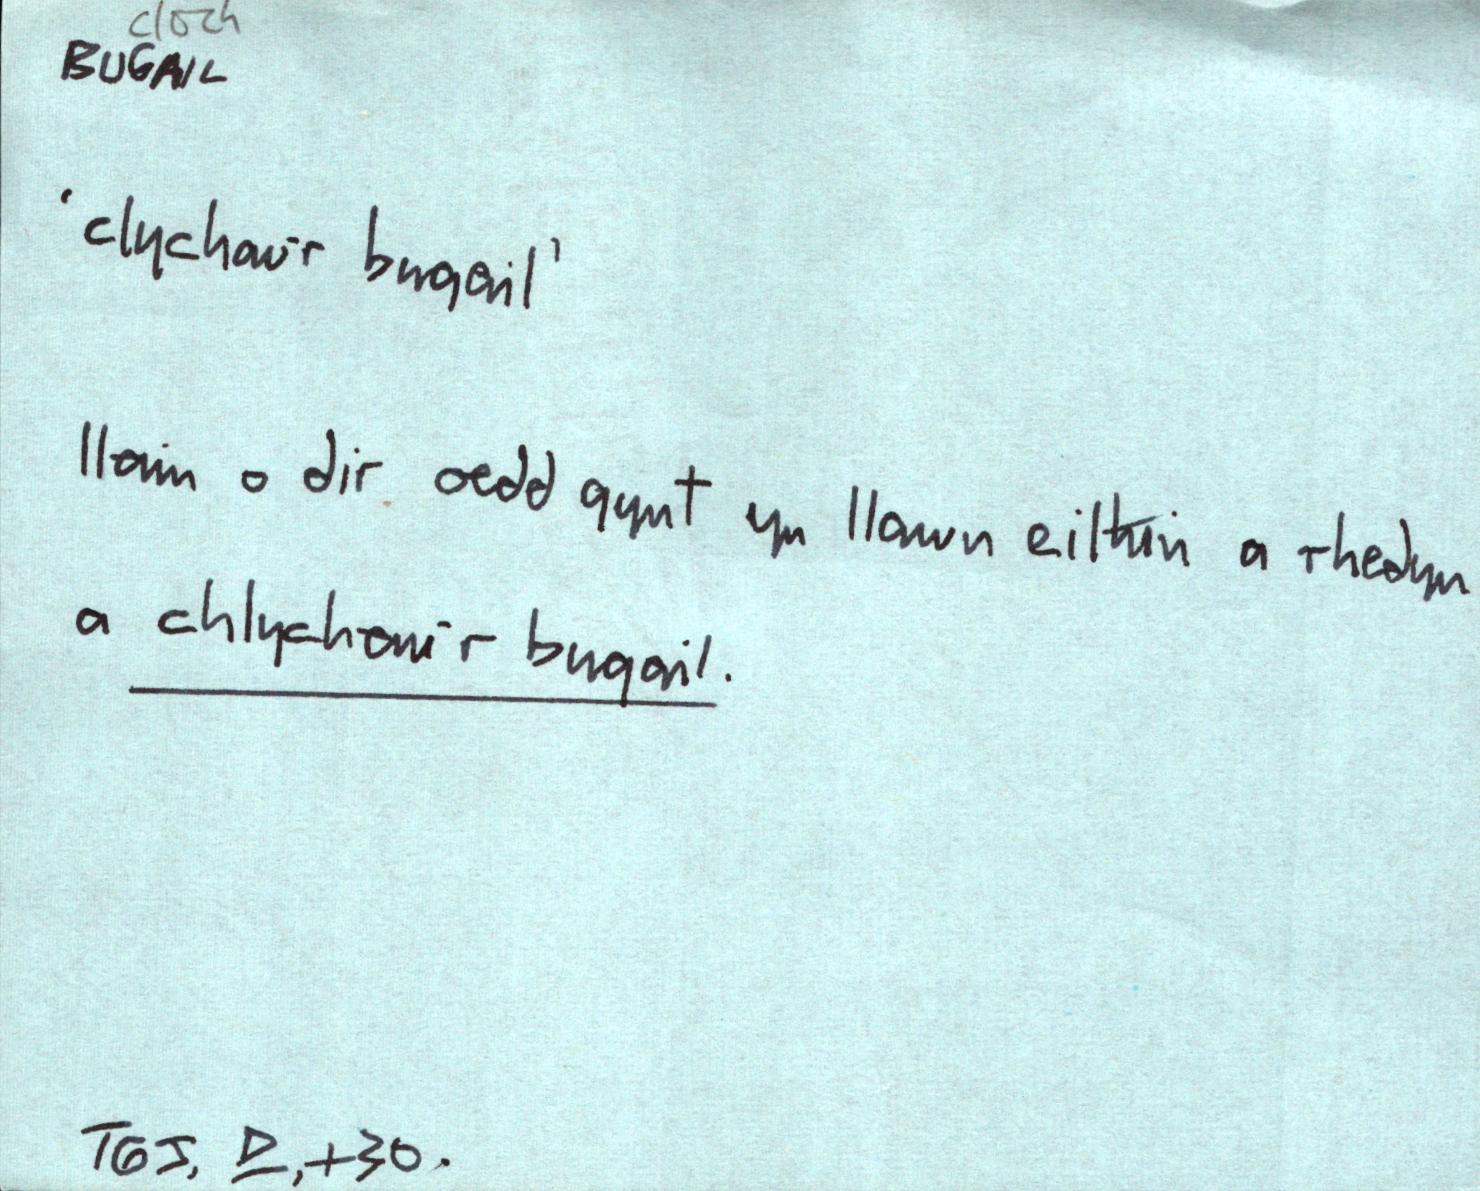 cloch
BUGAIL
'clychau'r bugail'
llain o dir oedd gynt yn llawn eithin a rhedyn
a chlychau'r bugail.
TGJ, D, +30.